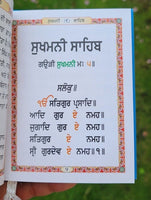 ਸੁਖਮਨੀ ਸਾਹਿਬ
ਸੁਖਮਨੀ ਸਾਹਿਬ
ਗਉੜੀ ਸੁਖਮਨੀ ਮਃ ੫॥
ਸਲੋਕੁ॥
ੴ ਸਤਿਗੁਰ ਪ੍ਰਸਾਦਿ॥
ਆਦਿ ਗੁਰ ਏ ਨਮਹ॥
ਜੁਗਾਦਿ ਗੁਰ ਏ ਨਮਹ॥
ਸਤਿਗੁਰ ਏ ਨਮਹ॥
ਸ੍ਰੀ ਗੁਰਦੇਵ ਏ ਨਮਹ॥੧॥